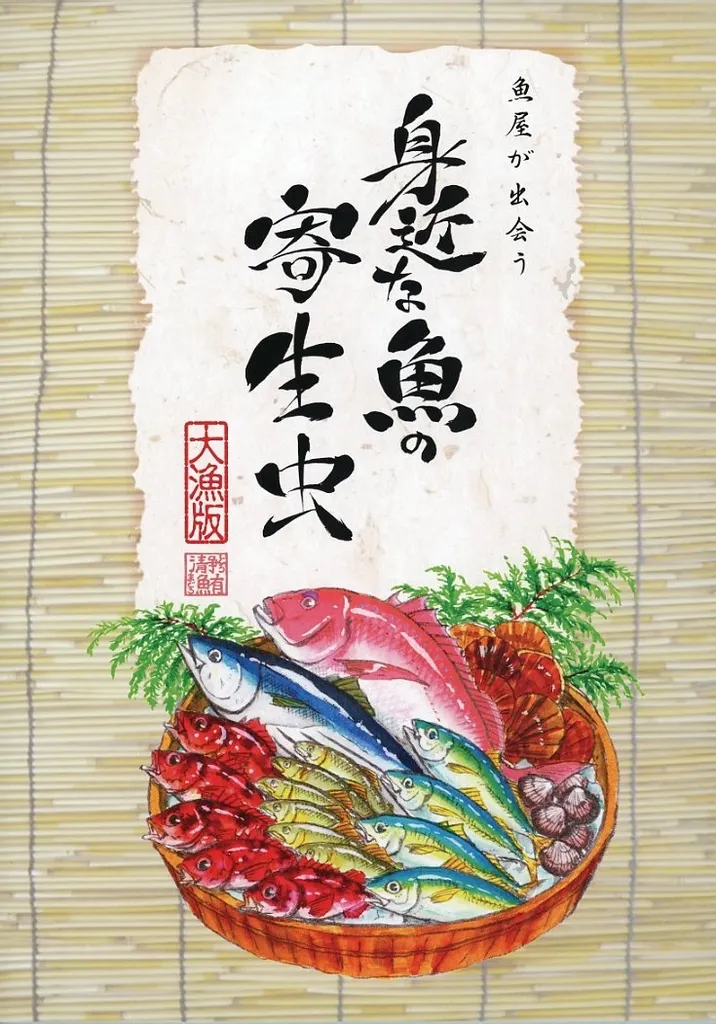 魚屋が出会う
身近な魚の
寄生虫
大漁版